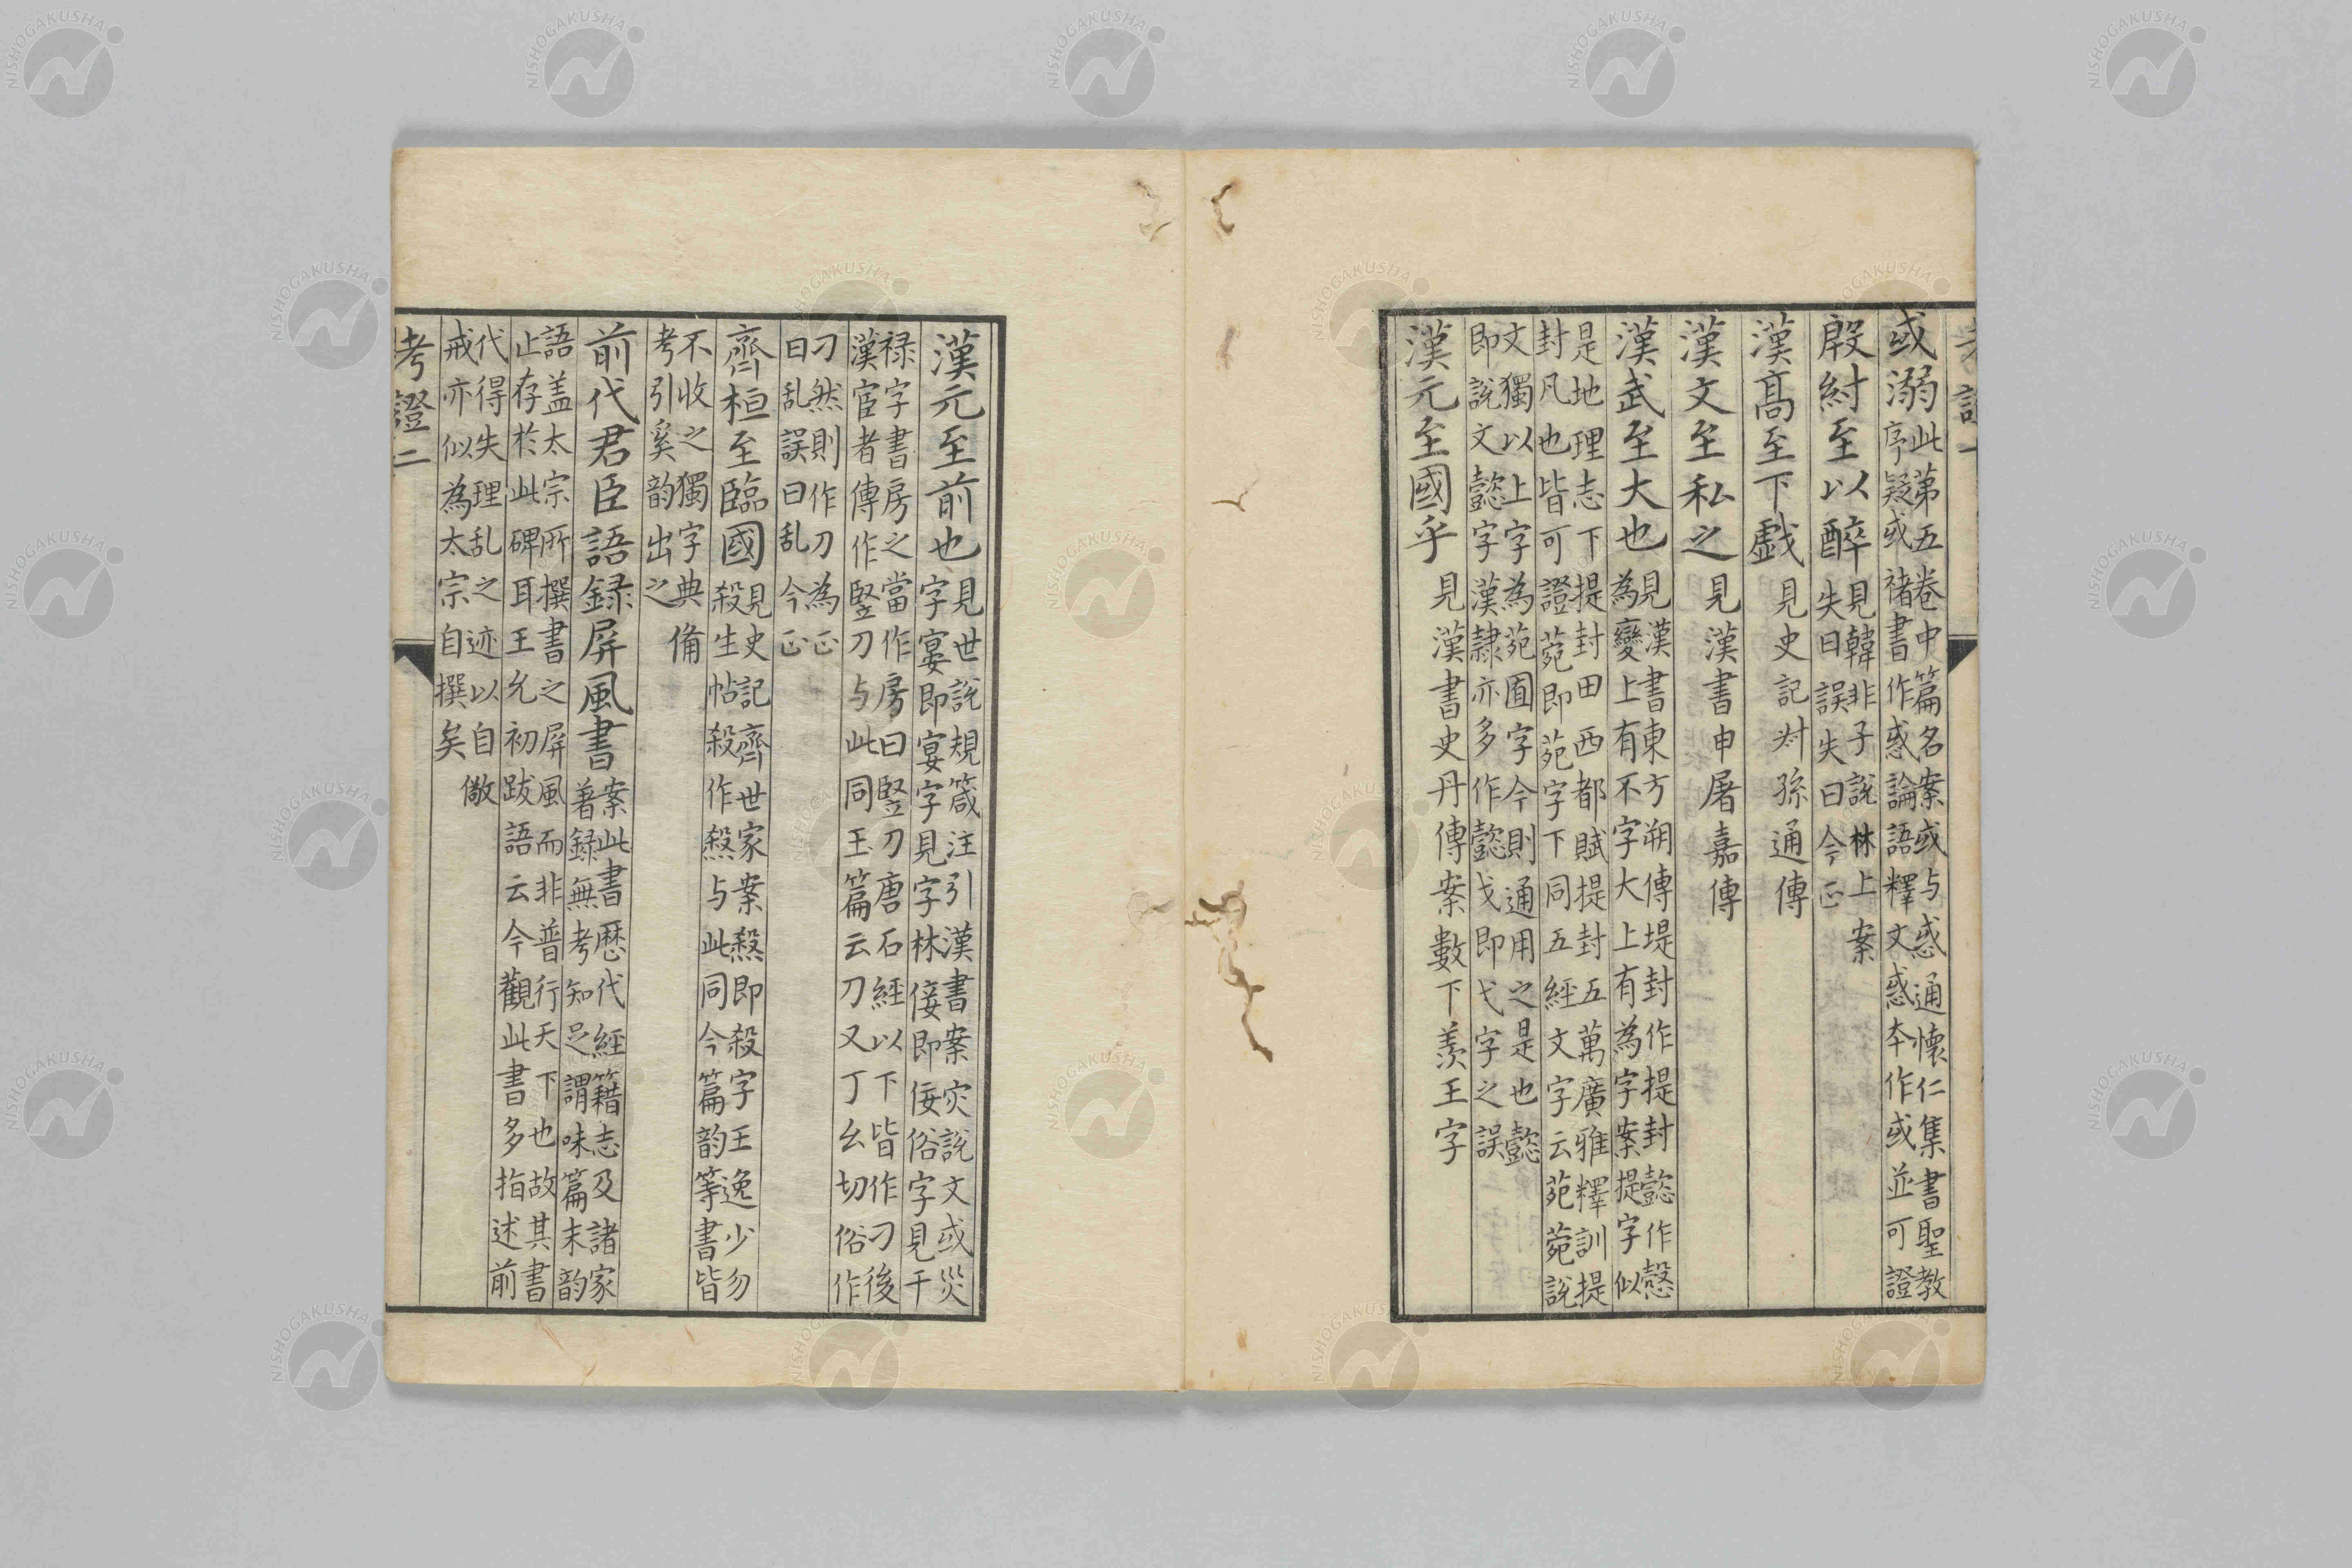 或溺此第五卷中篇名案或与惑通懷仁集書聖教
序疑或褚書作惑論語釋文惑本作或並可證
殷紂至以醉見韓非子說林上案
失日誤失曰今正
漢高至下戲見史記叔孫通傳
漢文至私之見漢書申屠嘉傳
漢武至大也見漢書東方朔傳堤封作提封懿作愨
為變上有不字大上有為字案提字似
是地理志下提封田西都賦提封五萬廣雅釋訓提
封凡也皆可證菀即苑字下同五經文字云苑菀說
文獨以上字為苑囿字今則通用之是也懿
即說文懿字漢隸亦多作懿戈即弋字之誤
漢元至國乎見漢書史丹傳案數下羨王字
漢元至前也見世說規箴注引漢書案灾說文或災
字宴即宴字見字林倿即佞俗字見干
祿字書房之當作房曰竪刀唐石經以下皆作刁後
漢宦者傳作竪刀与此同玉篇云刀又丁幺切俗作
刁然則作刀為正
曰乱誤曰乱今正
齊桓至臨國見史記齊世家案煞即殺字王逸少勿
殺生帖殺作煞与此同今篇韵等書皆
不收之獨字典備
考引奚韵出之
前代君臣語録屏風書案此書歷代經籍志及諸家
著録無考知足謂味篇末韵
語盖太宗所撰書之屏風而非普行天下也故其書
止存於此碑耳王允初跋語云今觀此書多指述前
代得失理乱之迹以自儆
戒亦似為太宗自撰矣
考證二